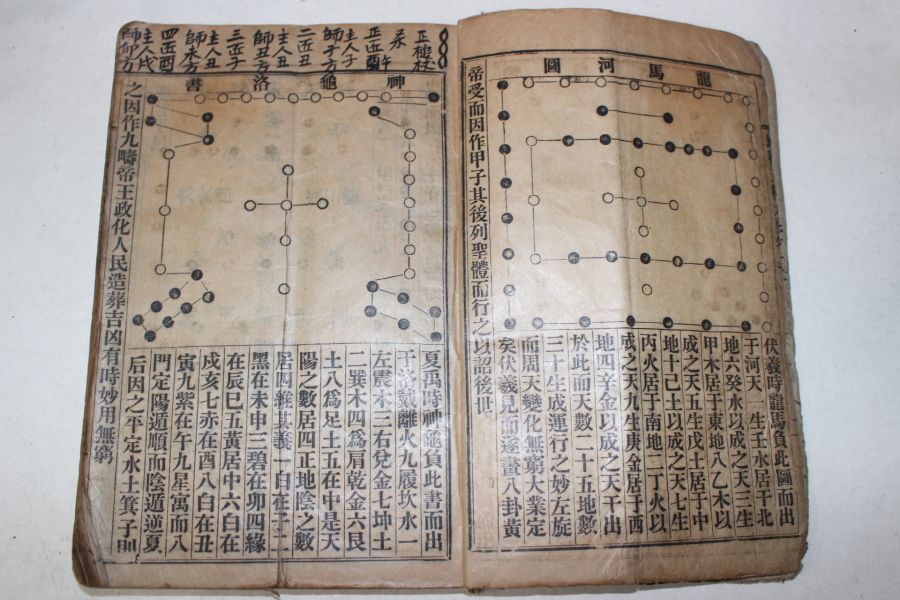 龍馬河圖
伏羲時龍馬負此圖而出
于河天一生壬水居于北
地六癸水以成之天三生
甲木居于東地八乙木以
成之天五生戊土居于中
地十已土以成之天七生
丙火居于南地二丁火以
成之天九生庚金居于西
地四辛金以成之天干出
於此而天數二十五地數
三十生成運行之妙左旋
而周天變化無窮大業定
矣伏羲見而遂畫八卦黃
帝受而因作甲子其後列聖體而行之以詔後世
正槌杖
正酉
主人子
師子方
二酉丑
主人丑
師丑方
三酉子
主人丑
師未方
四酉酉
主人戌
師卯方
神龜洛書
夏禹時神龜負此書而出
于洛戴離火九履坎水一
左震木三右兌金七坤土
二巽木四爲肩乾金六艮
土八爲足土五在中是天
陽之數居四正地陰之數
居四維其義一白在子二
黑在未申三碧在卯四緣
在辰巳五黃居中六白在
戌亥七赤在酉八白在丑
寅九紫在午九星寓而八
門定陽遁順而陰遁逆夏
后因之平定水土箕子則
之因作九疇帝王政化人民造葬吉凶有時妙用無窮